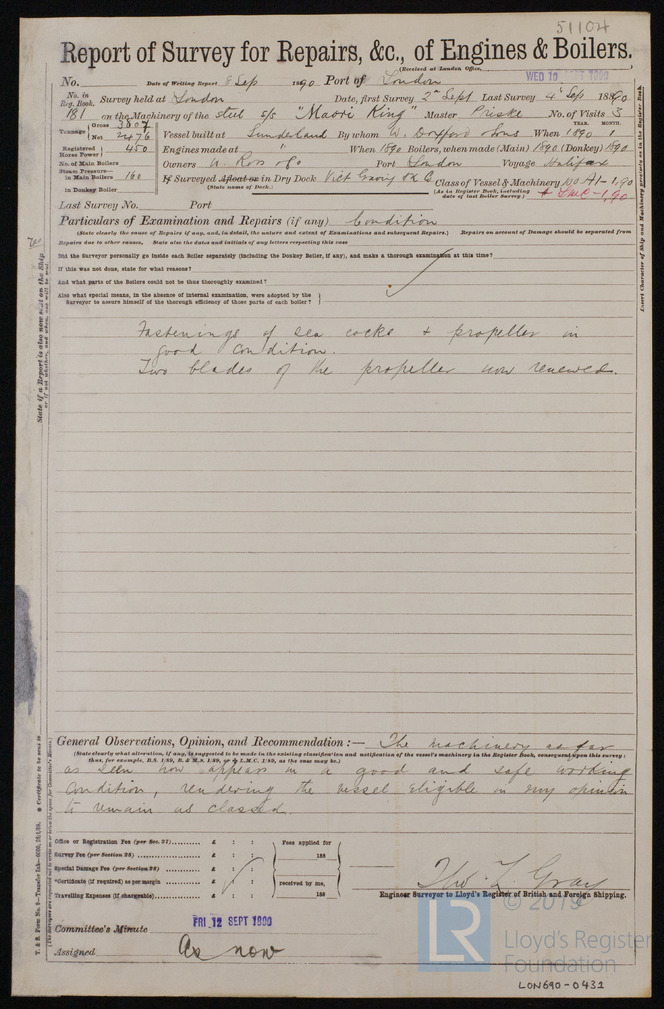 51104
Report of Survey for Repairs, &c., of Engines & Boilers.
(Received at London Office, WED 10 SEPT 1890
No. Date of Writing Report 8 Sep 1890 Port of London
No. in Reg. Book. Survey held at London Date, first Survey 2nd Sept Last Survey 4th Sep 1890
181 on the Machinery of the steel s/s "Maori King" Master Priske No. of Visits 3
Tonnage Gross 3807 Net 2476 Vessel built at Sunderland By whom W. Doxford & Sons When YEAR. 1890 MONTH. 1
Registered Horse Power 450 Engines made at " When 1890 Boilers, when made (Main) 1890 (Donkey) 1890
No. of Main Boilers Owners W. Ross & Co Port London Voyage Halifax
Steam Pressure— in Main Boilers 160 If Surveyed Afloat or in Dry Dock Class of Vessel & Machinery 100 A1-1,90
in Donkey Boiler (State name of Dock.) (As in Register Book, including date of last Boiler Survey.) + LMC-1,90
Last Survey No. Port
Particulars of Examination and Repairs (if any) Condition
(State clearly the cause of Repairs if any, and, in detail, the nature and extent of Examinations and subsequent Repairs.) Repairs on account of Damage should be separated from
Repairs due to other causes, State also the dates and initials of any letters respecting this case
Did the Surveyor personally go inside each Boiler separately (including the Donkey Boiler, if any), and make a thorough examination at this time?
If this was not done, state for what reasons?
And what parts of the Boilers could not be thus thoroughly examined?
Also what special means, in the absence of internal examination, were adopted by the
Surveyor to assure himself of the thorough efficiency of those parts of each boiler?
Fastenings of sea cocks & propeller in
good condition.
Two blades of the propeller now renewed.
General Observations, Opinion, and Recommendation :— The machinery as far
(State clearly what alteration, if any, is suggested to be made in the existing classification and notification of the vessel's machinery in the Register Book, consequent upon this survey;
thus, for example, B.S. 1/89, B. & M.S. 1/89, or L.M.C. 1/89, as the case may be.)
as seen now appears in a good and safe working
condition, rendering the vessel eligible in my opinion
to remain as classed.
Office or Registration Fee (per Sec. 27) £ : :
Survey Fee (per Section 28) £ : :
Special Damage Fee (per Section 28) £ : :
*Certificate (if required) as per margin £ : :
Travelling Expenses (if chargeable) £ : :
Fees applied for
188
received by me,
188
Tho. L Gray
Engineer Surveyor to Lloyd's Register of British and Foreign Shipping.
Committee's Minute FRI 12 SEPT 1890
Assigned As now
© 2019
LR
Lloyd's Register
Foundation
LON690-0431
State if a Report is also now sent on the Ship
Insert Character of Ship and Machinery precisely as in the Register Book.